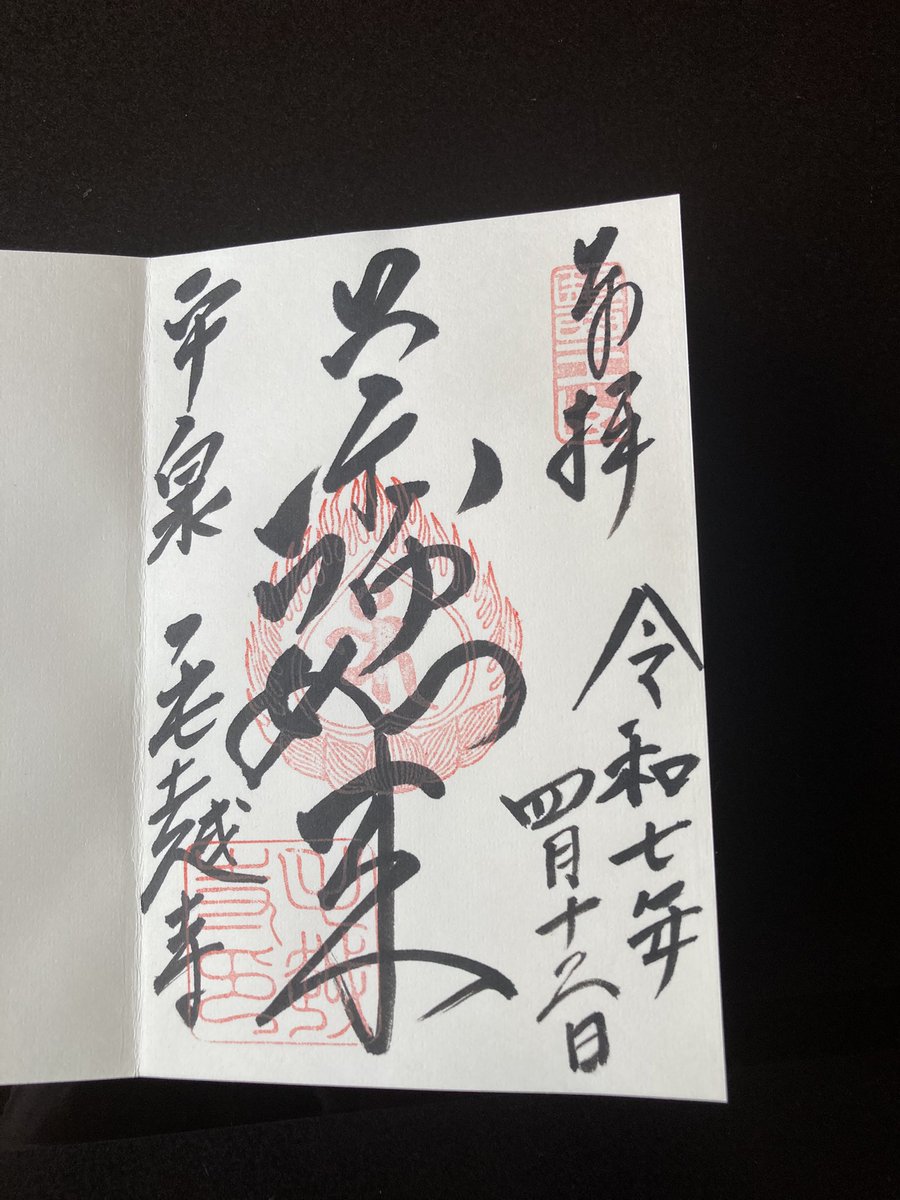 奉拝
令和七年
四月十六日
薬師如来
平泉 毛越寺